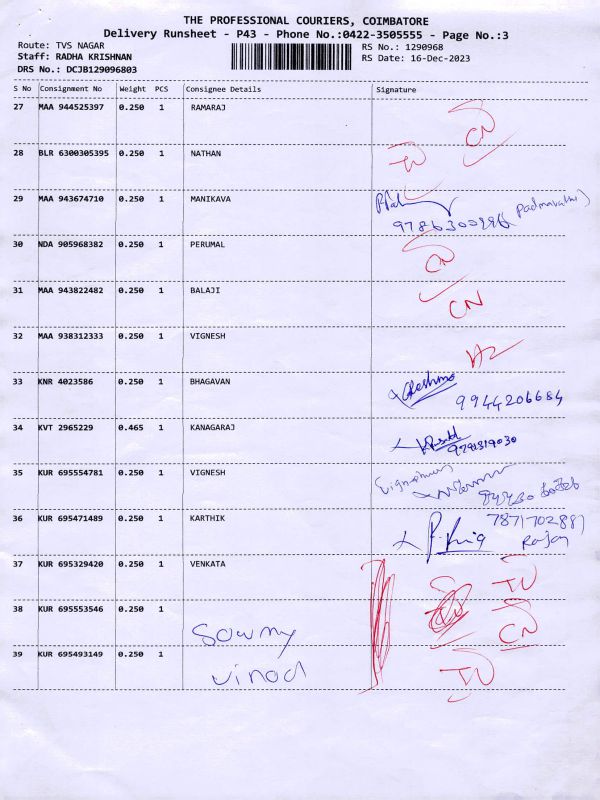 THE PROFESSIONAL COURIERS, COIMBATORE
Delivery Runsheet - P43 - Phone No.:0422-3505555 - Page No.:3
Route: TVS NAGAR RS No.: 1290968
Staff: RADHA KRISHNAN RS Date: 16-Dec-2023
DRS No.: DCJB129096803
S No Consignment No Weight PCS Consignee Details Signature
27 MAA 944525397 0.250 1 RAMARAJ CN
28 BLR 6300305395 0.250 1 NATHAN
29 MAA 943674710 0.250 1 MANIKAVA
30 NDA 905968382 0.250 1 PERUMAL CN
31 MAA 943822482 0.250 1 BALAJI CN
32 MAA 938312333 0.250 1 VIGNESH
33 KNR 4023586 0.250 1 BHAGAVAN Reshma 9944206684
34 KVT 2965229 0.465 1 KANAGARAJ
35 KUR 695554781 0.250 1 VIGNESH
36 KUR 695471489 0.250 1 KARTHIK 7871702881
Rajan
37 KUR 695329420 0.250 1 VENKATA
38 KUR 695553546 0.250 1 Sowmy CN
39 KUR 695493149 0.250 1 vinod